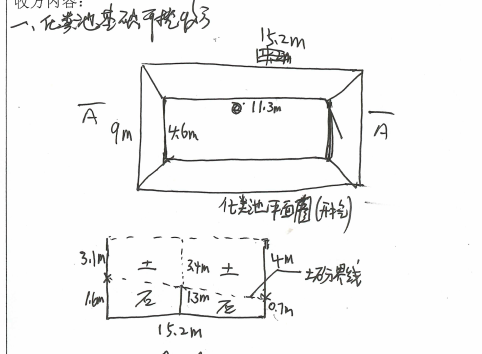 收方内容:
一、化粪池基础开挖
15.2m
A
11.3m
9m
4.6m
A
化粪池平面图(开挖)
3.1m
土
3.4m
土
4m
土石分界线
1.6m
石
1.3m
石
0.7m
15.2m